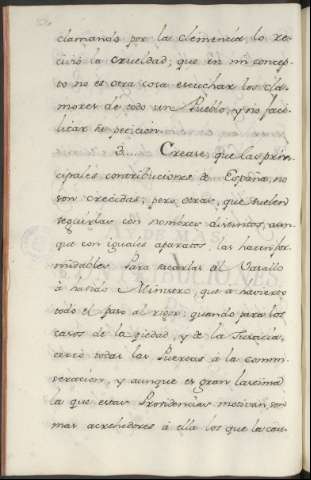 clamando por la clemencia, lo re-
civió la crueldad; que en mi concep-
to no es otra cosa escuchar los cla-
mores de todo un Pueblo, y no faci-
litar su peticion.
3. Crease que las prin-
cipales contribuciones de España, no
son crecidas, pero otras, que suelen
seguirlas con nombres distintos, aun-
que con iguales aparatos, las hacen for-
midables. Para sacarlas al Vasallo
à havido Ministro, que à havierto
todo el paso al rigor, quando para los
casos de la piedad, y de la Justicia,
cerrò todas las Puertas a la commi-
seracion, y aunque es gran lastima
la que estas Providencias motivan, son
mas acrehedores à ella los que la cau-